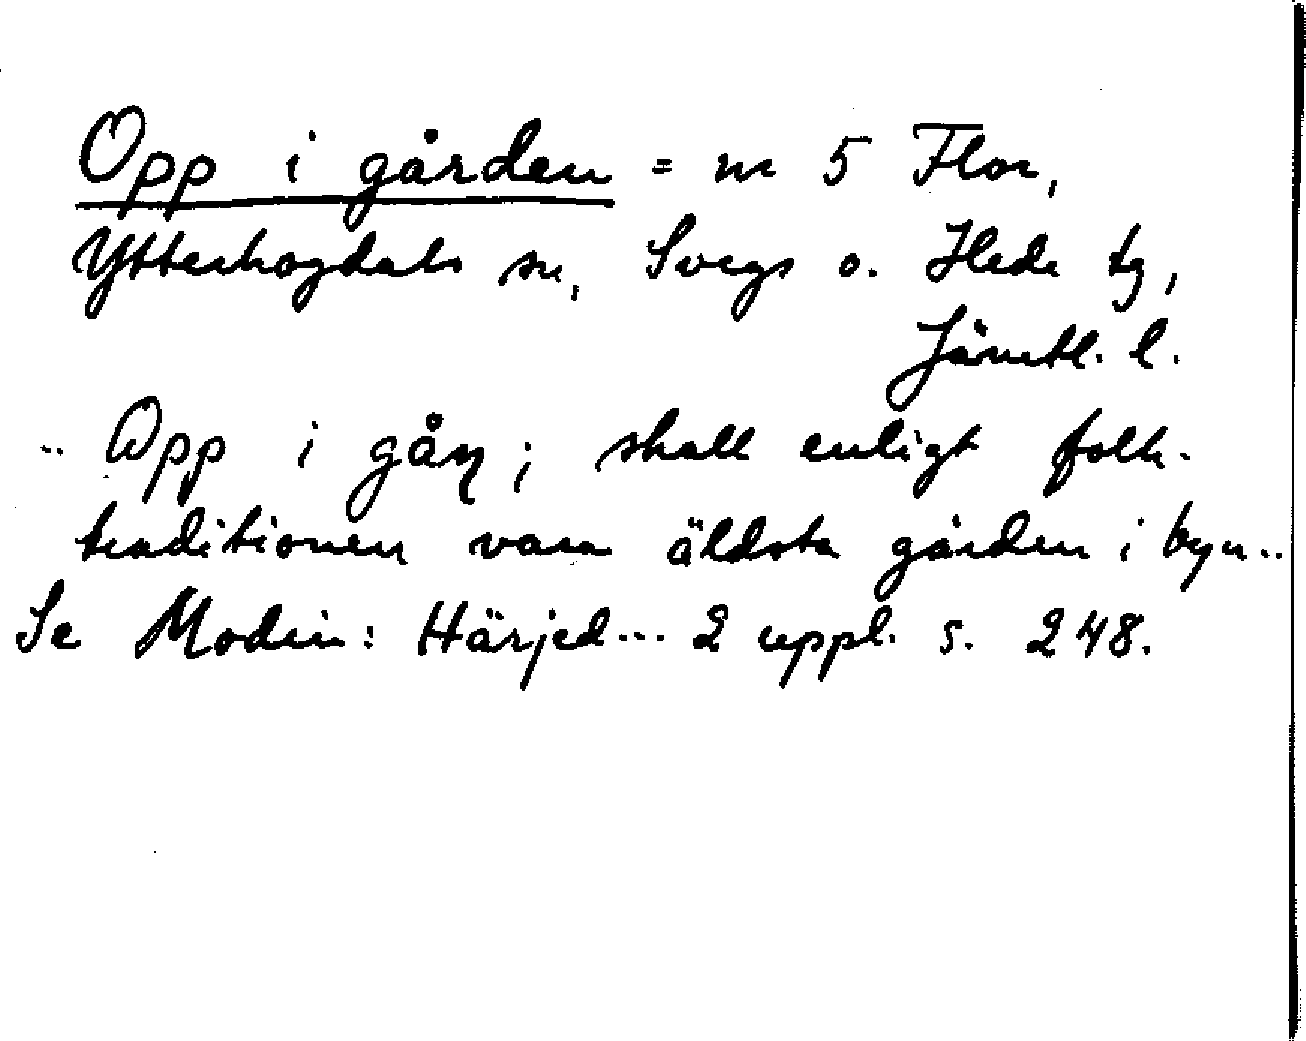 Opp i gården = nr 5 Flor,
Ytterhogdals sn, Svegs o. Hede tg,
Jämtl. l.
.. Opp i gåɳ; skall enligt folk-
traditionen vara äldsta gården i byn..
Se Modin: Härjed... 2 uppl. s. 248.